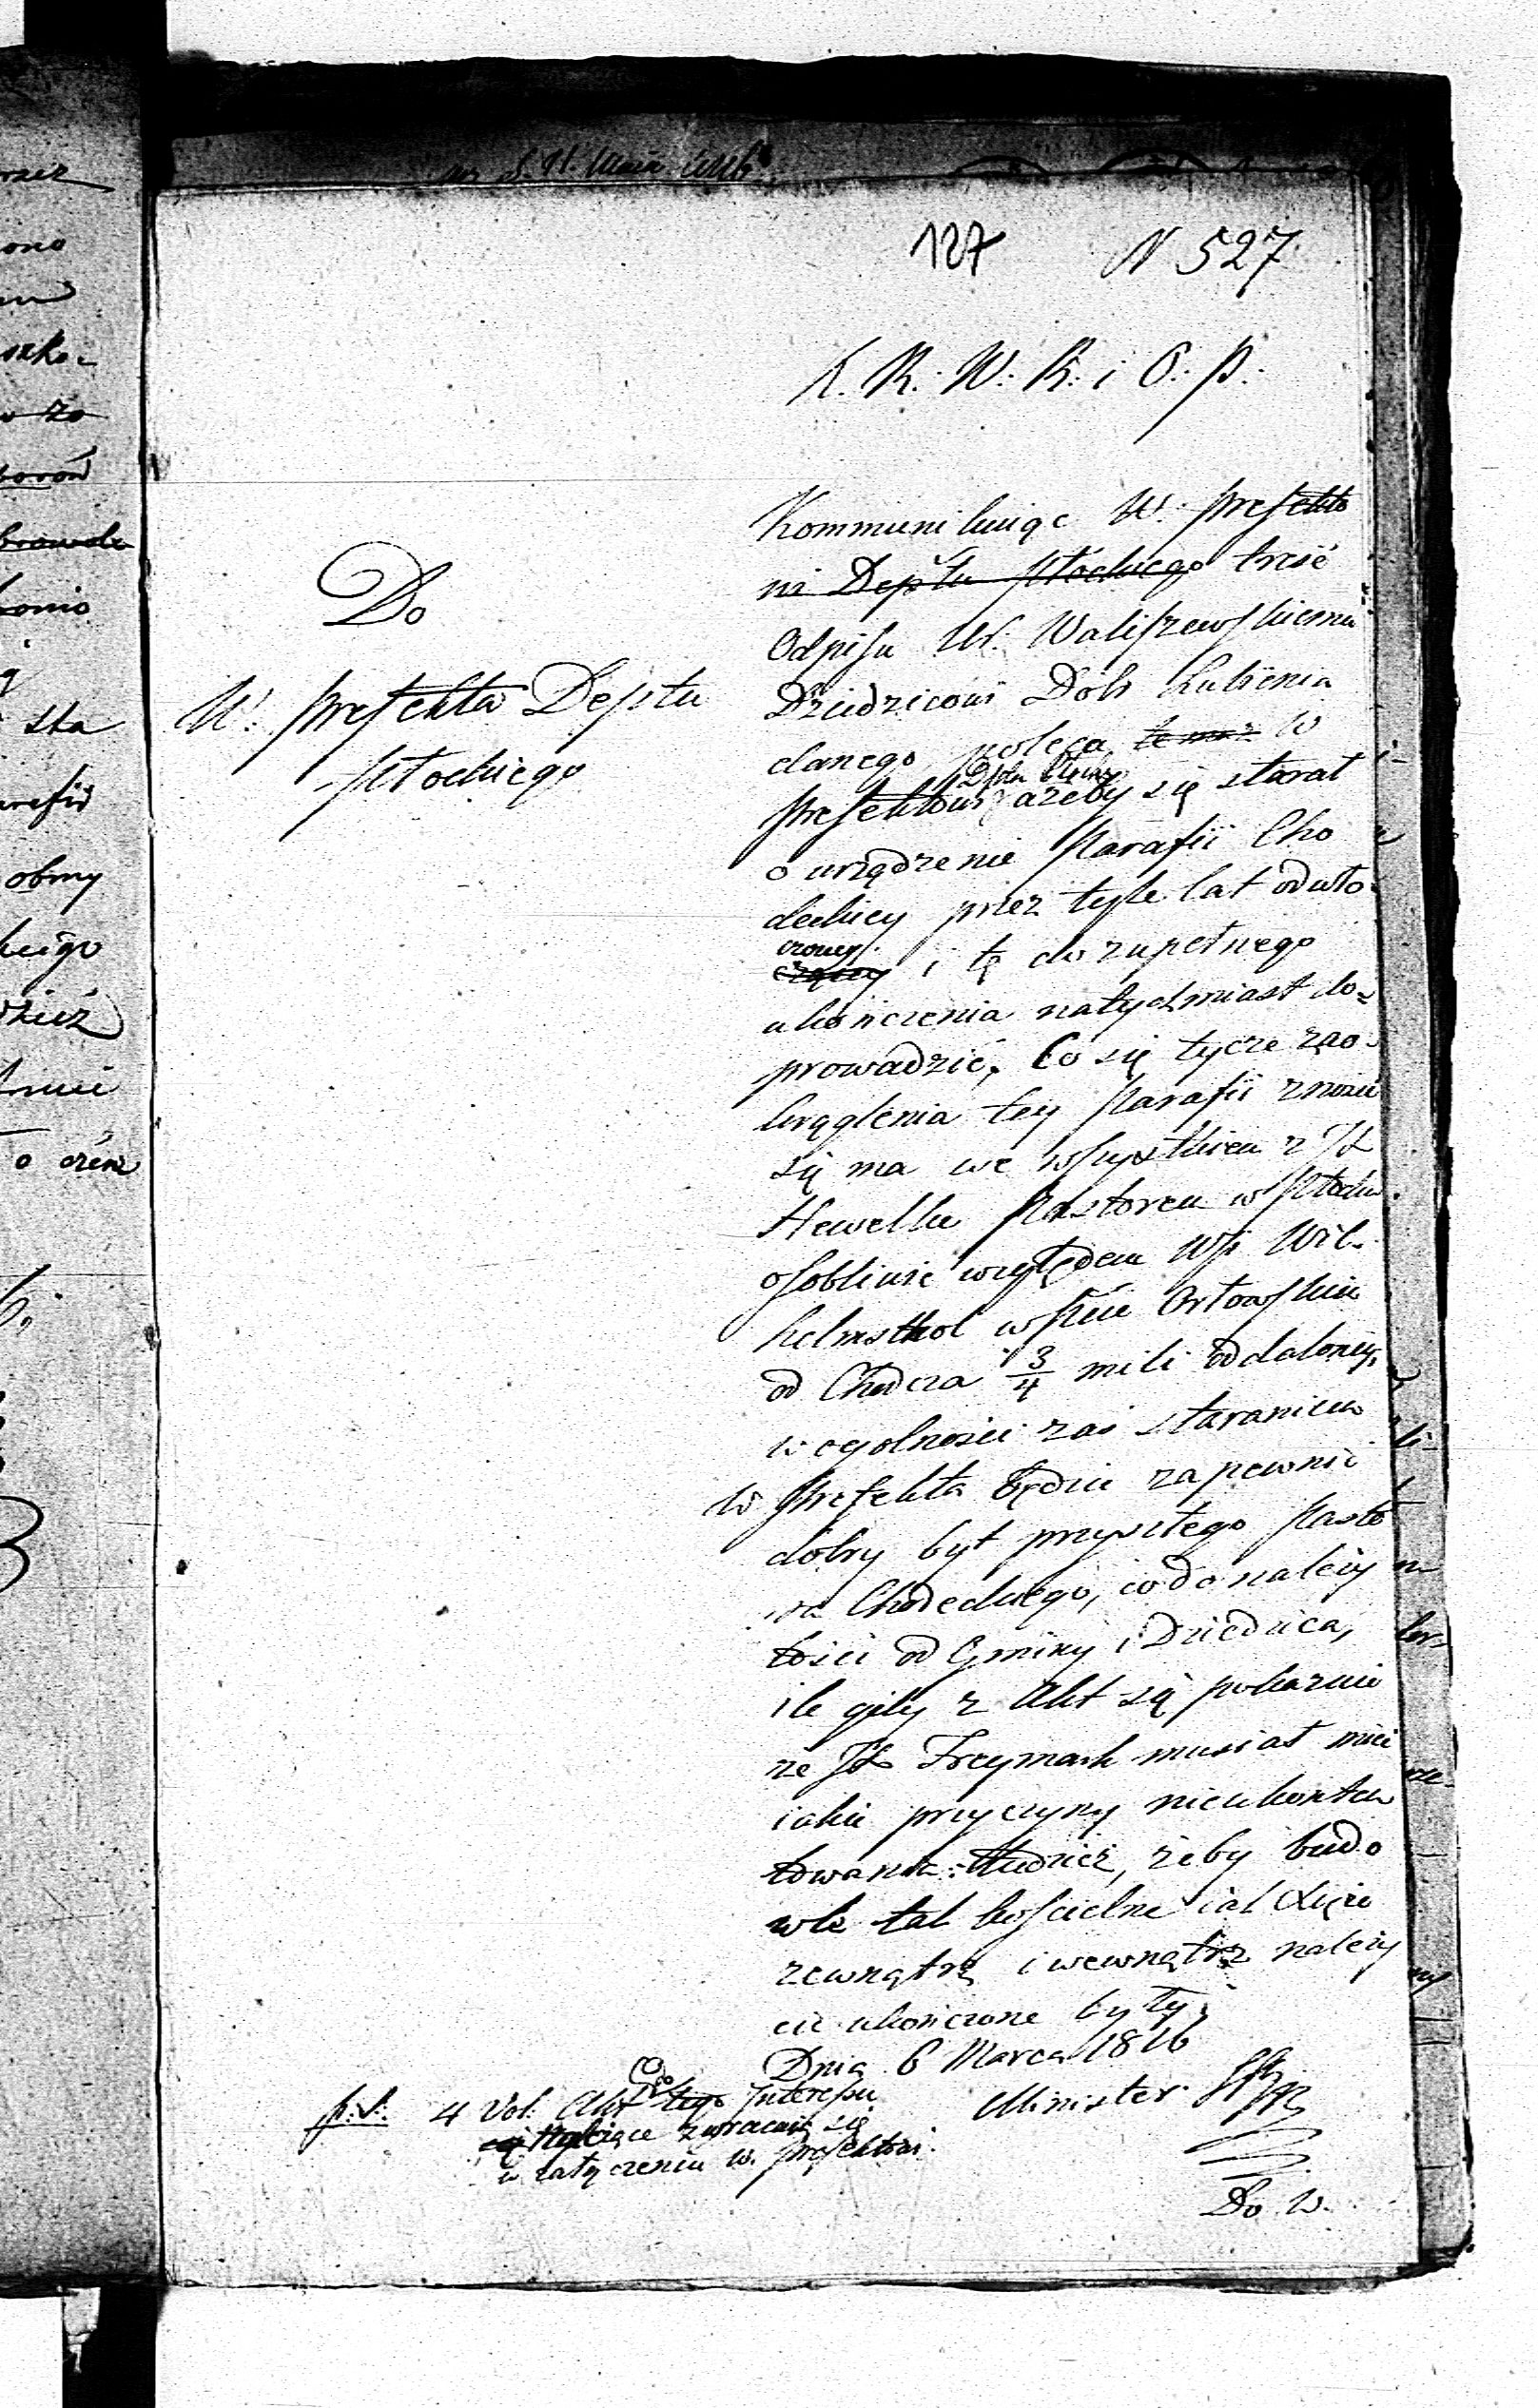 127 N 527
K. R. W. R. i O. P.
Do
W. Prefekta Deptu
Płockiego
Kommunikuiąc W. Prefekto
wi Deptu Płockiego treść
Odpisu Ur. Waliszewskiemu
Dziedzicowi Dóbr Lubienia
danego, poleca, W
Prefektowi Dptu Płock: ażeby się starał
o urządzenie Parafii Cho
deckiey przez tyle lat odwło-
czoney i tę do zupełnego
ukończenia natychmiast do-
prowadzić. Co się tycze zao-
krąglenia tey Parafii znosić
się ma we wszystkiem z JX
Hewelke Pastorem w Płocku
osobliwie względem Wsi Wil-
helmsthal w Pcie Orłowskim
od Chodcza 3/4 mili oddaloney,
w ogolności zaś staraniem
W Prefekta będzie zapewnić
dobry byt przyszłego Pasto
ra Chodeckiego, co do należy
tości od Gminy i Dziedzica,
ile gdy z Akt się pokazuie
że JX Freymark musiał mieć
iakie przyczyny nieukonten
towania: tudzież, żeby budo
wle tak kościelne iak
zewnątrz i wewnątrz należy
cie ukończone były.
Dnia 6 Marca 1816
Minister
p.S. 4 Vol. Akt tego Interessu
tyczące zwracaią się
w załączeniu W. Prefektowi.
Do W.